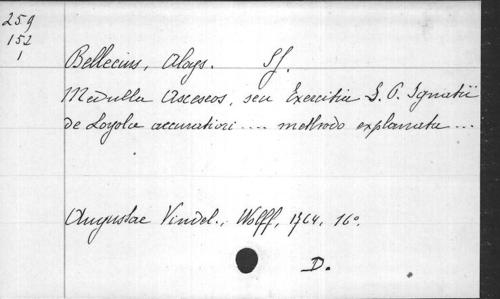 259
152
1
Bellecius, Aloys. Sf.
Medulla Asceseos, seu Exercitia S. P. Ignatii
de Loyola accuratiori .... methodo explanata ...
Augustae Vindel., Wolff, 1764, 16°.
D.